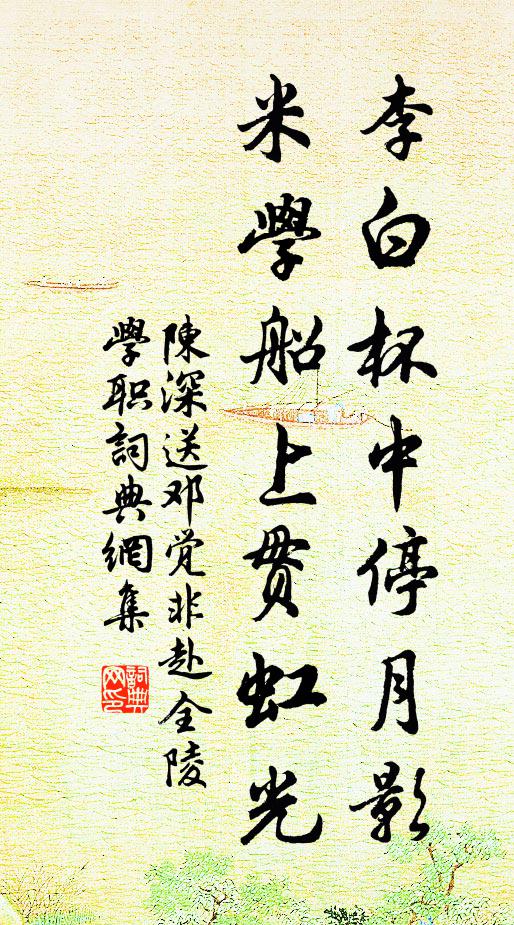 李白杯中停月影
米學船上貫虹光
陳深送邓觉非赴全陵
學职詞典網集
詞典網印